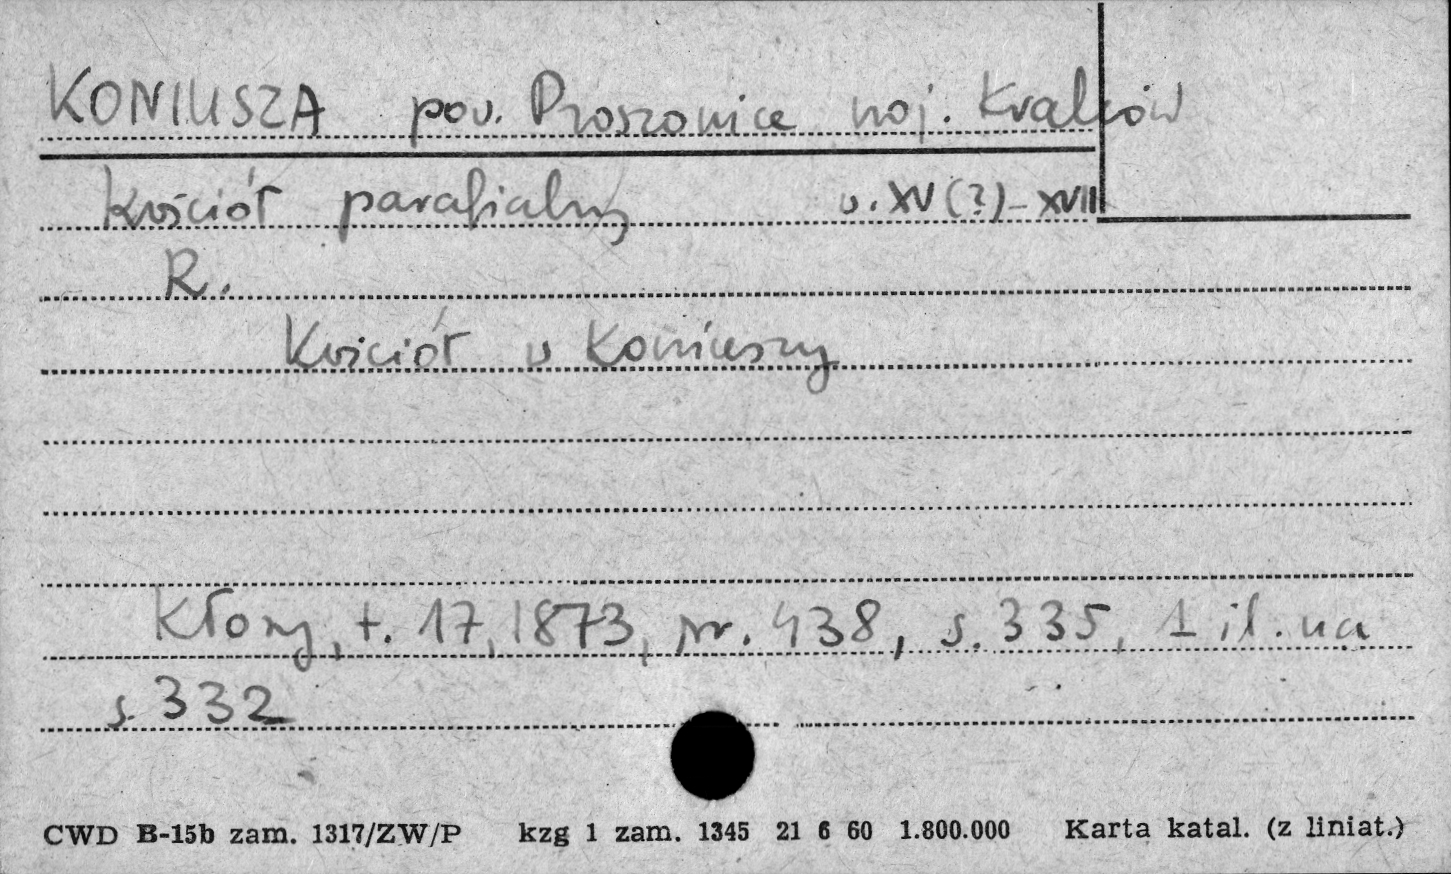 KONIUSZA pow. Proszowice woj. Kraków
Kościół parafialny w. XV (?) - XVIII
R.
Kościół w Koniuszy
Kłosy, t. 17, 1873, nr. 438, s. 335, 1 il. na
s. 332
CWD B-15b zam. 1317/ZW/P kzg 1 zam. 1345 21 6 60 1.800.000 Karta katal. (z liniat.)